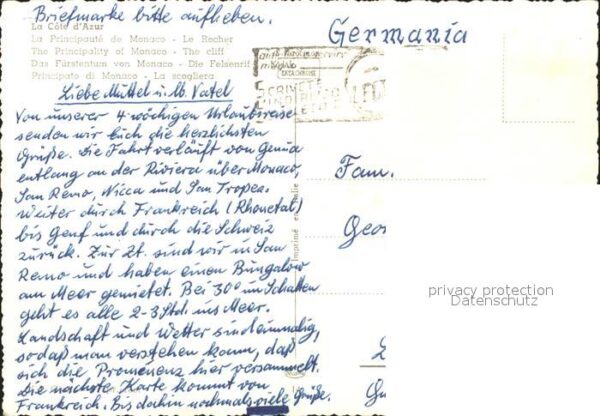 Briefmarke bitte aufheben.
La Côte d'Azur
La Principauté de Monaco - Le Rocher
The Principality of Monaco - The cliff
Das Fürstentum von Monaco - Die Felsenrif
Principato di Monaco - La scogliera
Germania
Liebe Muttel u. lb. Vatel
Von unserer 4 wöchigen Urlaubsreise
senden wir Euch die herzlichsten
Grüße. Die Fahrt verläuft von Genua
entlang an der Riviera über Monaco,
San Remo, Nicca und San Tropez.
Weiter durch Frankreich (Rhonetal)
bis Genf und durch die Schweiz
zurück. Zur Zt. sind wir in San
Remo und haben einen Bungalow
am Meer gemietet. Bei 30° im Schatten
geht es alle 2-3 Std. ins Meer.
Landschaft und Wetter sind einmalig,
sodaß man verstehen kann, daß
sich die Prominenz hier versammelt.
Die nächste Karte kommt von
Frankreich. Bis dahin nochmals viele Grüße.
Imprimé en Italie
Fam.
Geor
privacy protection
Datenschutz